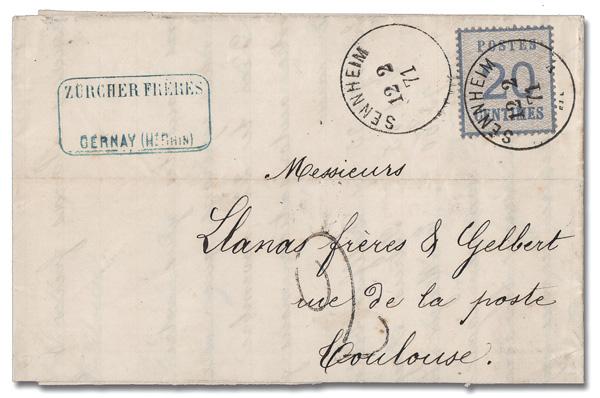 ZÜRCHER FRÈRES
CERNAY (HT RHIN)
SENNHEIM
12
2
71
POSTES
20
CENTIMES
SENNHEIM
12 2
71
Messieurs
Llanas frères & Gelbert
rue de la poste
Toulouse.
2